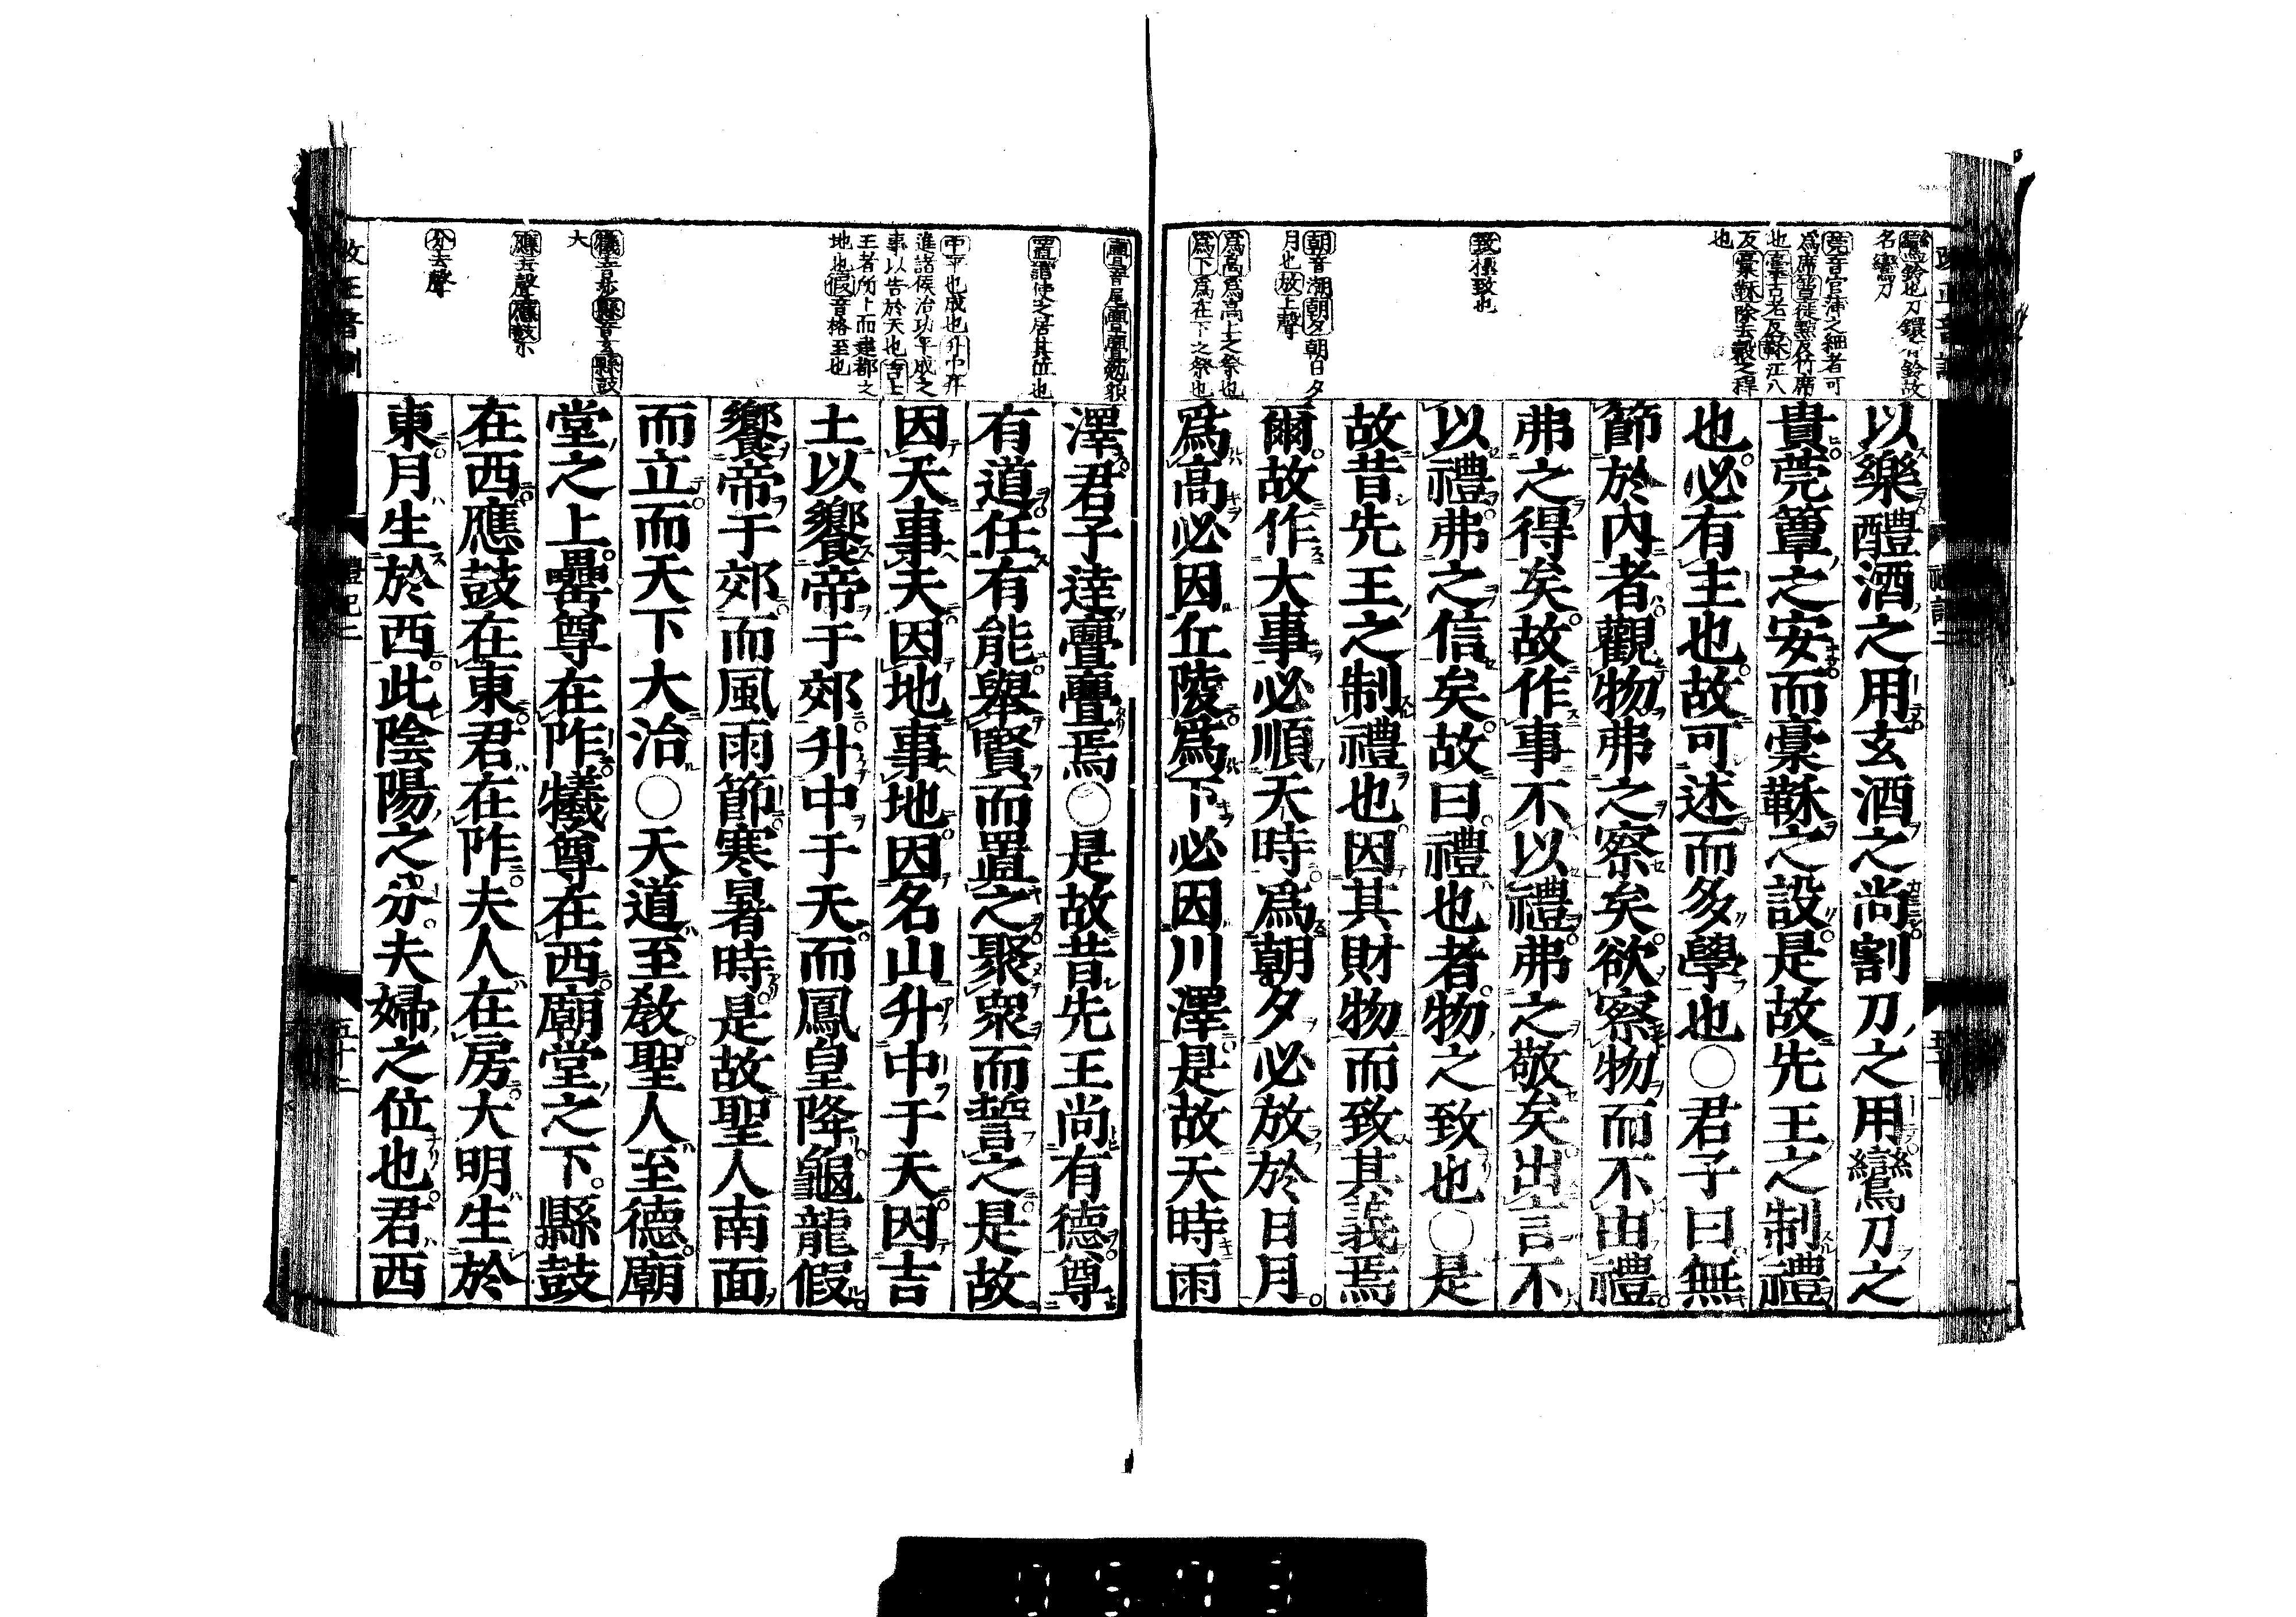 鸞鈴也刀鐶有鈴故
名鸞刀
莞音官蒲之細者可
爲席簟徒點反竹席
也稾古老反鞂江八
反稾鞂除去穀之稈
也
致極致也
朝音潮朝夕朝日夕
月也放上聲
爲高爲高上之祭也
爲下爲在下之祭也
以樂醴酒之用玄酒之尚割刀之用鸞刀之
貴莞簟之安而稾鞂之設是故先王之制禮
也必有主也故可述而多學也○君子曰無
節於內者觀物弗之察矣欲察物而不由禮
弗之得矣故作事不以禮弗之敬矣出言不
以禮弗之信矣故曰禮也者物之致也○是
故昔先王之制禮也因其財物而致其義焉
爾故作大事必順天時爲朝夕必放於日月
爲高必因丘陵爲下必因川澤是故天時雨
亹音尾亹亹勉貌
置謂使之居其位也
中平也成也升中在
進諸侯治功平成之
事以告於天也吉土
王者所卜而建都之
地也假音格至也
犧音莎縣音玄縣鼓
大
應去聲應鼓小
分去聲
澤君子達亹亹焉○是故昔先王尚有德尊
有道任有能舉賢而置之聚衆而誓之是故
因天事天因地事地因名山升中于天因吉
土以饗帝于郊升中于天而鳳皇降龜龍假
饗帝于郊而風雨節寒暑時是故聖人南面
而立而天下大治○天道至敎聖人至德廟
堂之上罍尊在阼犧尊在西廟堂之下縣鼓
在西應鼓在東君在阼夫人在房大明生於
東月生於西此陰陽之分夫婦之位也君西
改正音訓
禮記二
五十二